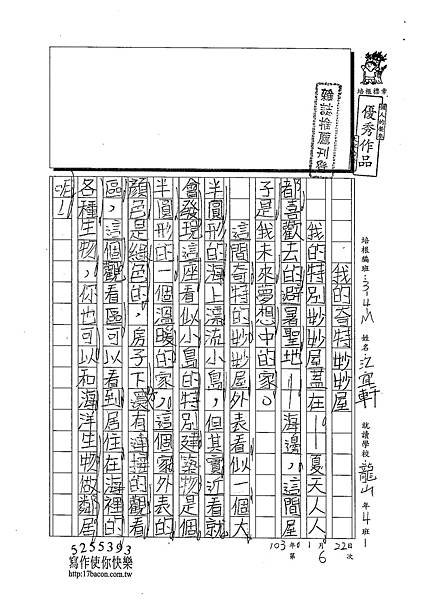 培根標章
個人的象徵
優秀作品
雜誌推薦刊登
培根編班：3、4M 姓名 江宜軒 就讀學校 龍山 年4班1
我的奇特妙妙屋
我的特別妙妙屋蓋在——夏天人人
都喜歡去的避暑聖地——海邊，這間屋
子是我未來夢想中的家。
這間奇特的妙妙屋外表看似一個大
半圓形的海上漂流小島，但其實近看就
會發現這座看似小島的特別建築物是個
半圓形的一個溫暖的家，這個家外表的
顏色是綠色的，房子下還有海擁的觀看
區，這個觀看區可以看到居住在海裡的
各種生物，你也可以和海洋生物做鄰居
呢！
103年01月22日
第6次
5255393
寫作使你快樂
http://17bacon.com.tw/